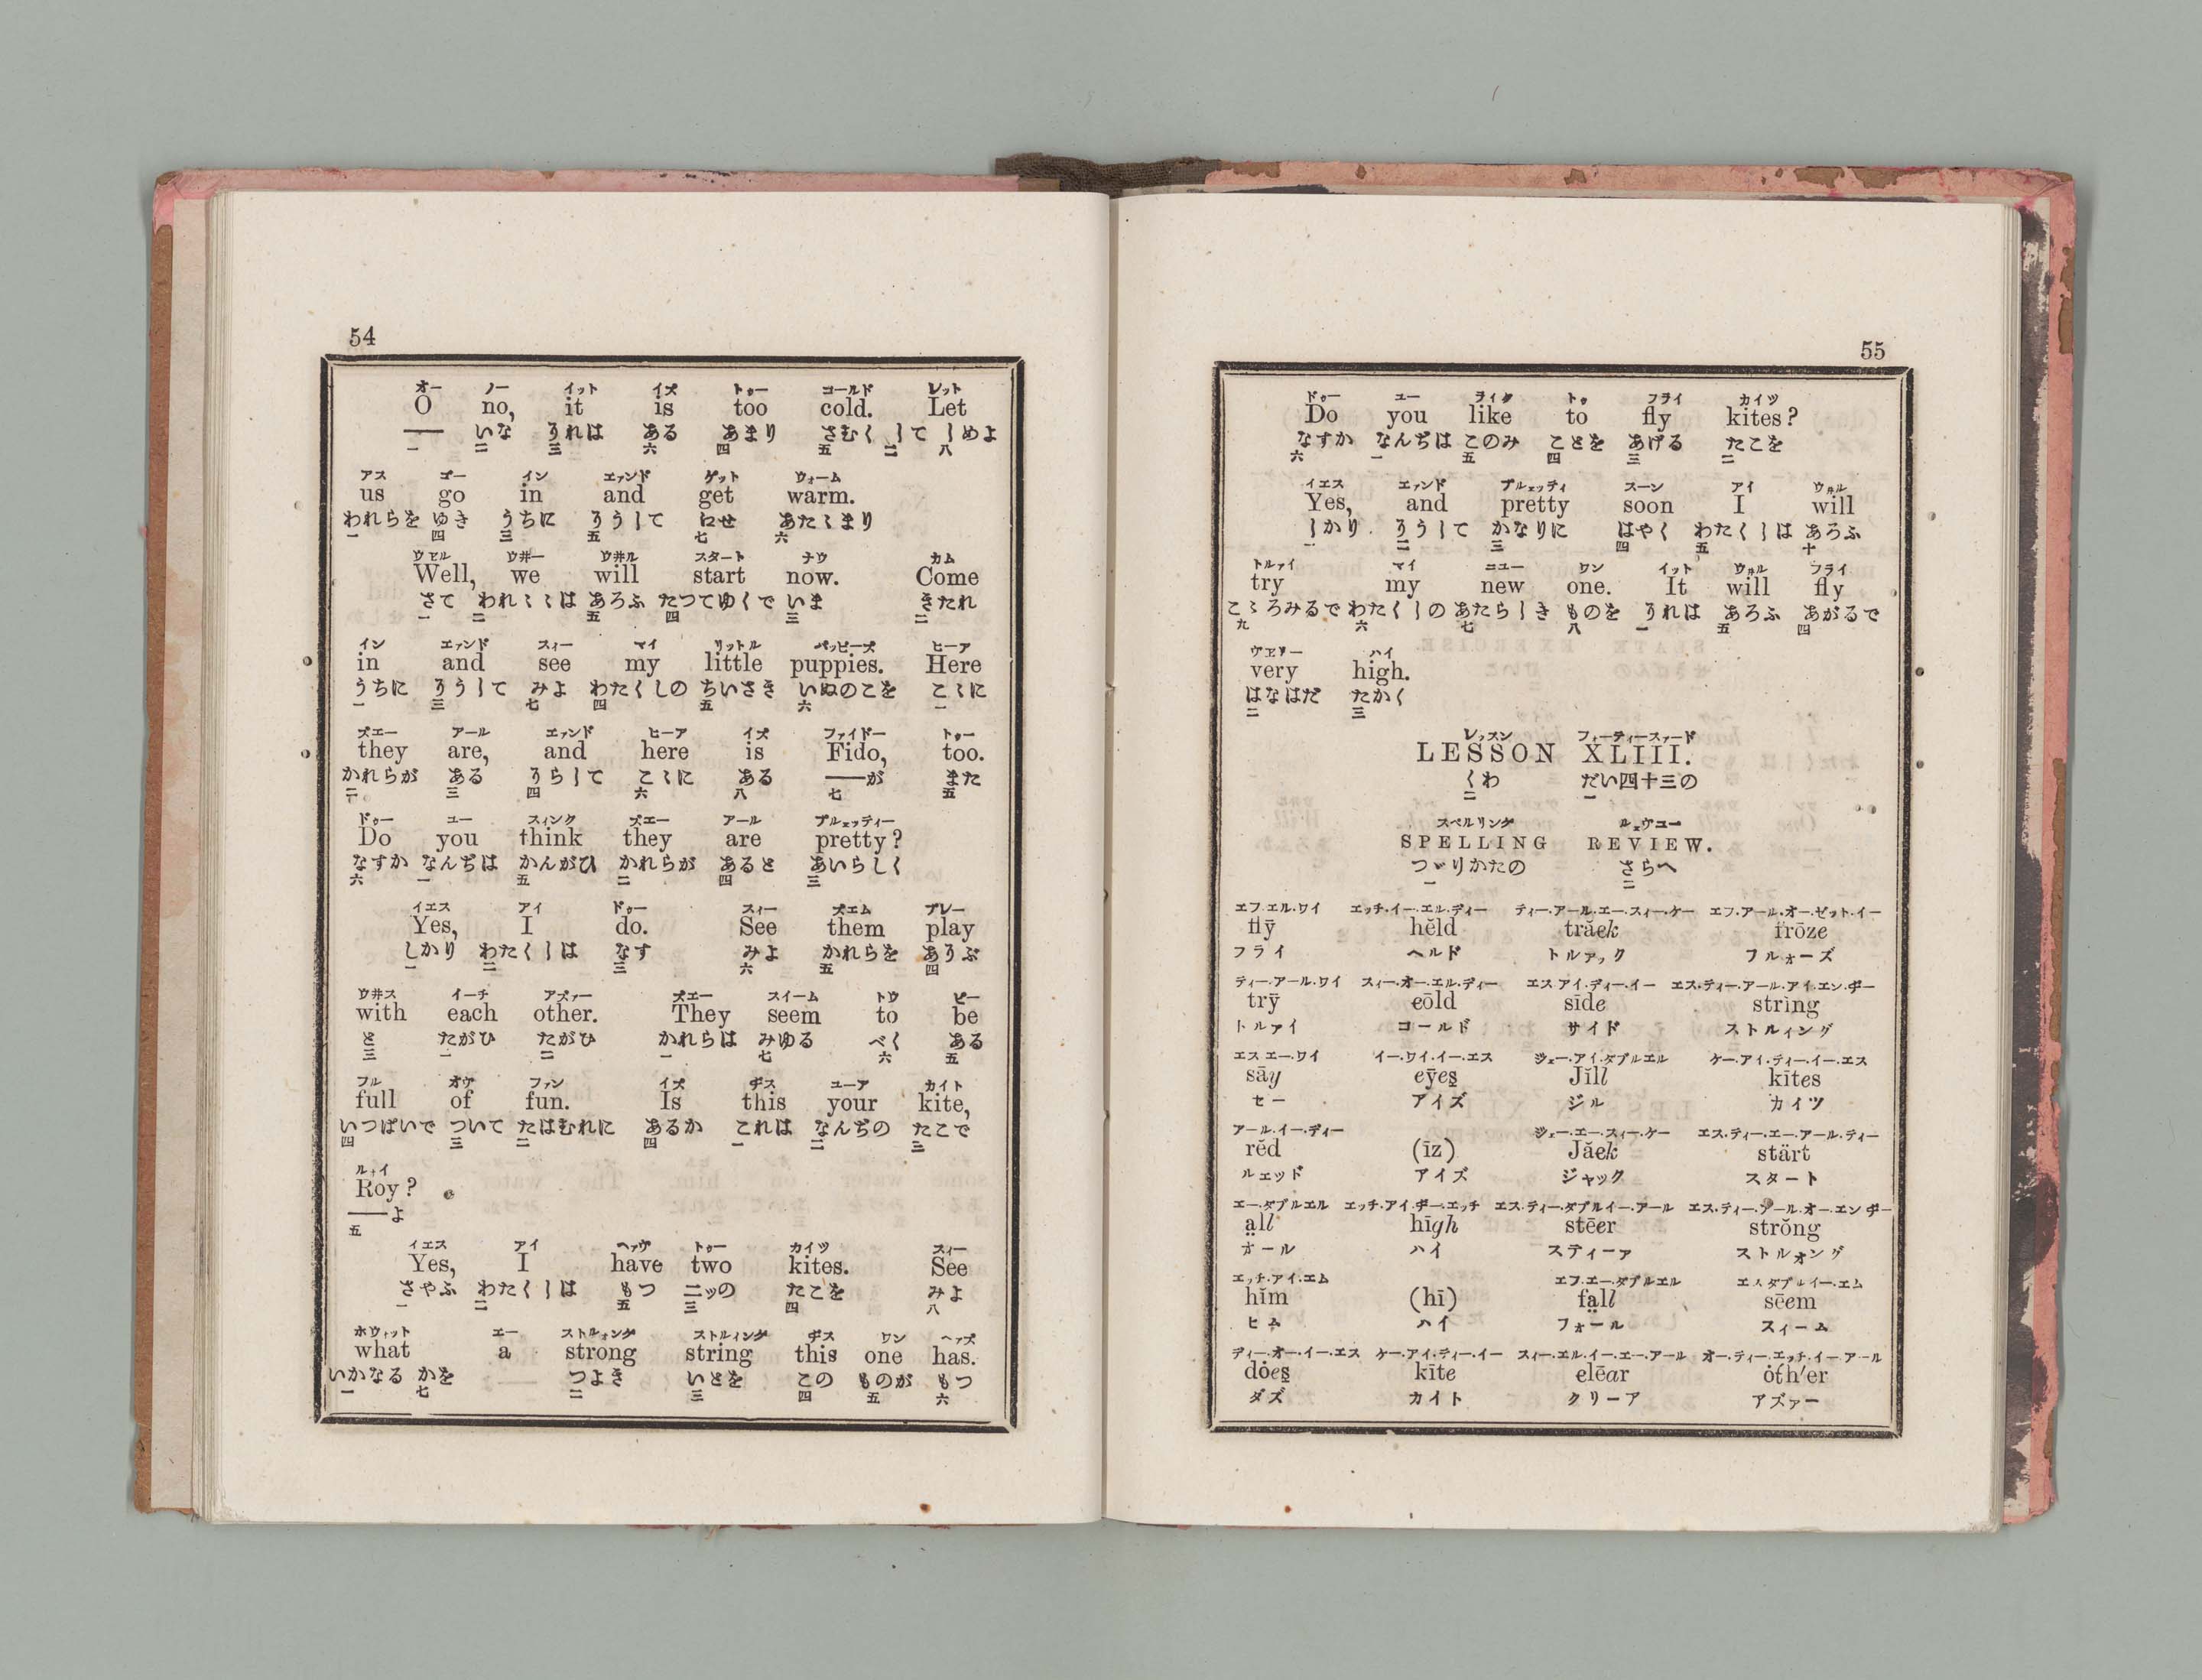 54
オー ノー イット イズ トゥー コールド レット
O no, it is too cold. Let
—— いな それは ある あまり さむく して しめよ
一 二 三 六 四 五 二 八
アス ゴー イン エァンド ゲット ウォーム
us go in and get warm.
われらを ゆき うちに そうして にせ あたゝまり
一 四 三 五 七 六
ウエル ウ井ー ウ井ル スタート ナウ カム
Well, we will start now. Come
さて われ〻は あろふ たつてゆくで いま きたれ
一 二 五 四 三 二
イン エァンド スィー マイ リットル パッピーズ ヒーア
in and see my little puppies. Here
うちに そうして みよ わたくしの ちいさき いぬのこを こゝに
一 三 七 四 五 六 一
ズエー アール エァンド ヒーア イズ ファイドー トゥー
they are, and here is Fido, too.
かれらが ある そらして こゝに ある ——が また
二 三 四 六 八 七 五
ドゥー ユー スィンク ズエー アール プルェッティー
Do you think they are pretty?
なすか なんぢは かんがひ かれらが あると あいらしく
六 一 五 二 四 三
イエス アイ ドゥー スィー ズエム プレー
Yes, I do. See them play
しかり わたくしは なす みよ かれらを あそぶ
一 二 三 六 五 四
ウ井ス イーチ アズァー ズエー スイーム トウ ビー
with each other. They seem to be
と たがひ たがひ かれらは みゆる べく ある
三 一 二 一 七 六 五
フル オヴ ファン イズ ヂス ユーア カイト
full of fun. Is this your kite,
いつぱいで ついて たはむれに あるか これは なんぢの たこで
四 三 二 四 一 二 三
ルォイ
Roy?
——よ
五
イエス アイ ヘァヴ トゥー カイツ スィー
Yes, I have two kites. See
さやふ わたくしは もつ 二ッの たこを みよ
一 二 五 三 四 八
ホウィット エー ストルォング ストルィング ヂス ワン ヘァズ
what a strong string this one has.
いかなる かを つよき いとを この ものが もつ
一 七 二 三 四 五 六
55
ドゥー ユー ライク トゥ フライ カイツ
Do you like to fly kites?
なすか なんぢは このみ ことを あげる たこを
六 一 五 四 三 二
イエス エァンド プルェッティ スーン アイ ウ井ル
Yes, and pretty soon I will
しかり そうして かなりに はやく わたくしは あろふ
一 二 三 四 五 十
トルァイ マイ ニユー ワン イット ウ井ル フライ
try my new one. It will fly
こゝろみるで わたくしの あたらしき ものを それは あろふ あがるで
九 六 七 八 一 五 四
ヴエリー ハイ
very high.
はなはだ たかく
二 三
レッスン フォーティースァード
LESSON XLIII.
くわ だい四十三の
二 一
スペルリング ルェヴユー
SPELLING REVIEW.
つゞりかたの さらへ
一 二
エフ.エル.ワイ エッチ.イー.エル.ディー ティー.アール.エー.スィー.ケー エフ.アール.オー.ゼット.イー
flȳ hĕld trăck frōze
フライ ヘルド トルァック フルォーズ
ティー.アール.ワイ スィー.オー.エル.ディー エス.アイ.ディー.イー エス.ティー.アール.アイ.エン.ヂー
trȳ cōld sīde string
トルァイ コールド サイド ストルィング
エス.エー.ワイ イー.ワイ.イー.エス ジェー.アイ.ダブルエル ケー.アイ.ティー.イー.エス
sāy eȳes Jĭll kītes
セー アイズ ジル カイツ
アール.イー.ディー ジェー.エー.スィー.ケー エス.ティー.エー.アール.ティー
rĕd (īz) Jăck stärt
ルエッド アイズ ジャック スタート
エー.ダブルエル エッチ.アイ.ヂー.エッチ エス.ティー.ダブルイー.アール エス.ティー.アール.オー.エン.ヂー
a̤ll hīgh stēer strŏng
オール ハイ スティーァ ストルォング
エッチ.アイ.エム エフ.エー.ダブルエル エス.ダブルイー.エム
hĭm (hī) fa̤ll sēem
ヒム ハイ フォール スィーム
ディー.オー.イー.エス ケー.アイ.ティー.イー スィー.エル.イー.エー.アール オー.ティー.エッチ.イー.アール
dȯes kīte clēar ȯth′er
ダズ カイト クリーア アズァー